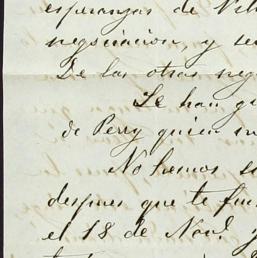 esperanzas de
negociacion, y
De las otras neg
Se han
de Perry quien
No hemos
despues que te fui
el 18 de Nov.